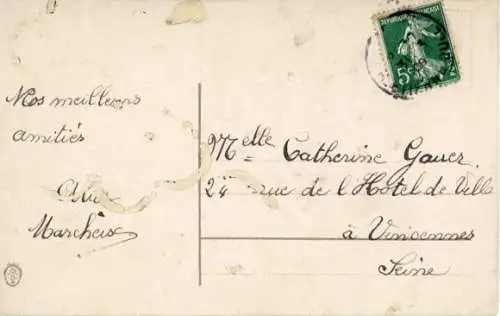 Nos meilleures
amitiés
Marcheix
Melle Catherine Gauer
24 rue de l'Hotel de Ville
à Vincennes
Seine
REPUBLIQUE FRANÇAISE
5c